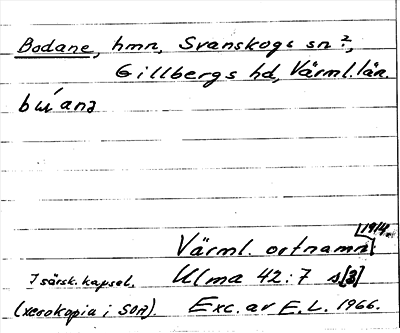 Bodane, hmn, Svanskogs sn?,
Gillbergs hd, Värml. län
1914
Värml. ortnamn
I särsk. kapsel. Ulma 42:7 s[3]
(xerokopia i SOA). Exc. av E.L. 1966.